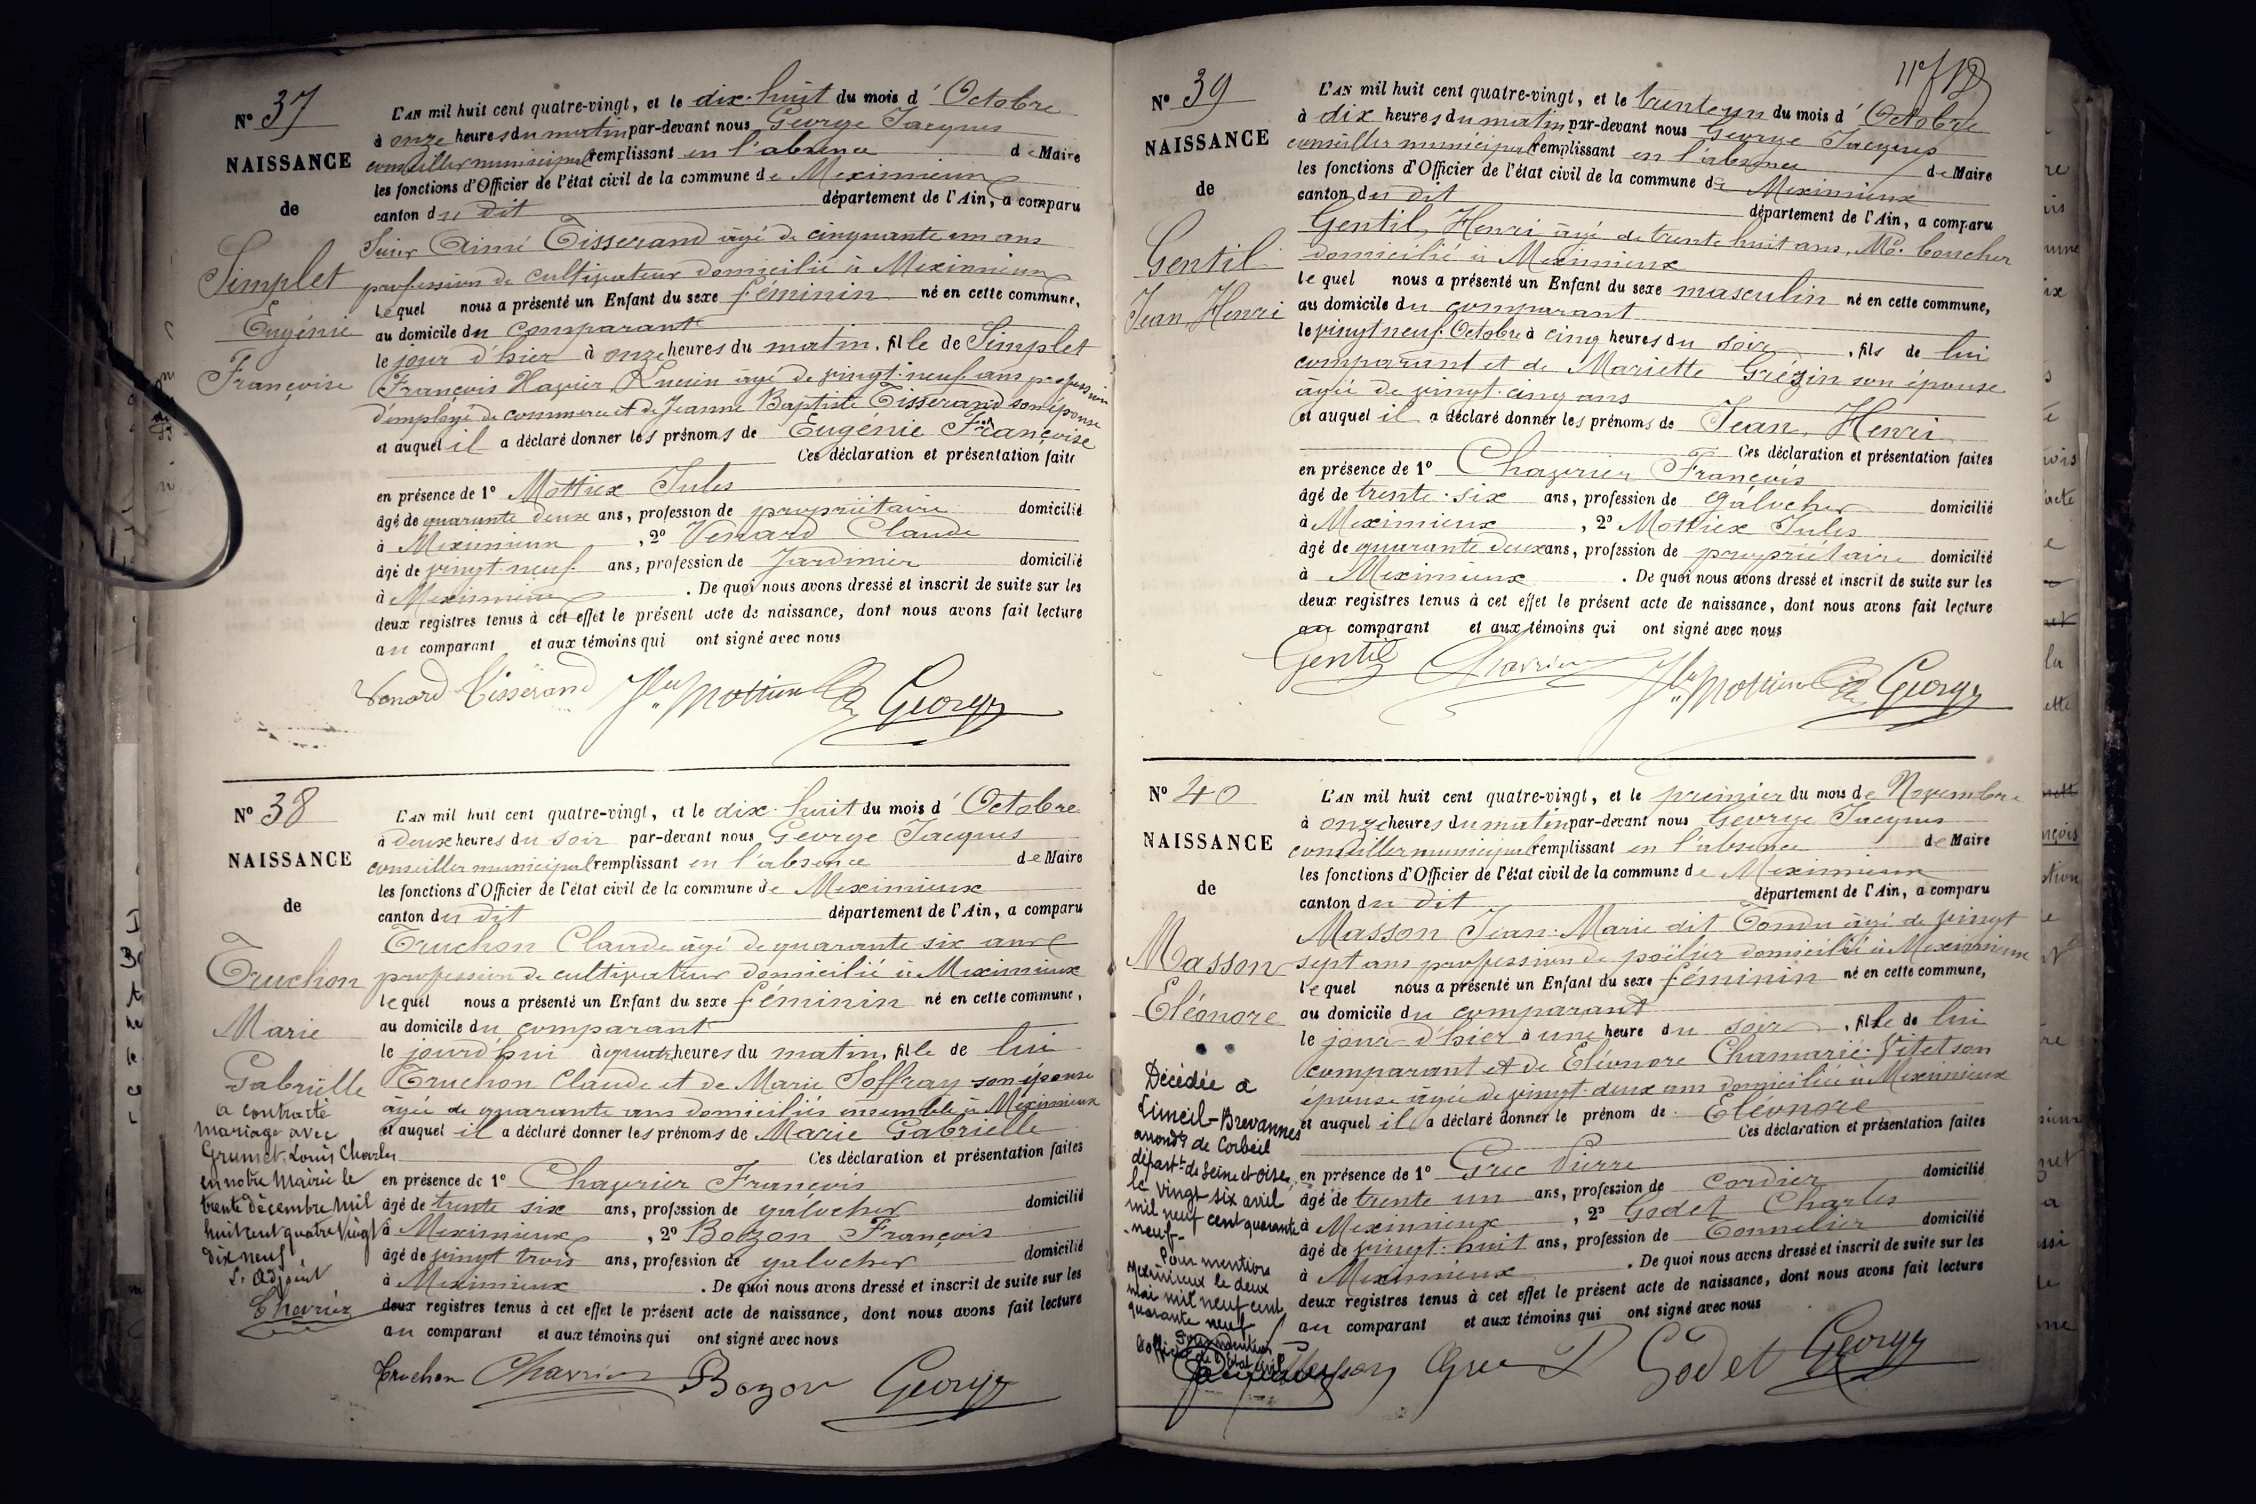 N° 37
NAISSANCE
de
Simplet
Eugénie
Françoise
L'AN mil huit cent quatre-vingt, et le dix-huit du mois d'Octobre
à onze heures du matin par-devant nous George Jacques
conseiller municipal remplissant en l'absence de Maire
les fonctions d'Officier de l'état civil de la commune de Meximieux
canton du dit département de l'Ain, a comparu
Sieur Aimé Tisserand âgé de cinquante un ans
profession de cultivateur domicilié à Meximieux
lequel nous a présenté un Enfant du sexe féminin né en cette commune,
au domicile du comparant
le jour d'hier à onze heures du matin, fille de Simplet
François Xavier Lucien âgé de vingt-neuf ans profession
d'employé de commerce et de Jeanne Baptiste Tisserand son épouse
et auquel il a déclaré donner les prénoms de Eugénie Françoise
Ces déclaration et présentation faite
en présence de 1° Mottiex Jules
âgé de quarante deux ans, profession de propriétaire domicilié
à Meximieux, 2° Venard Claude
âgé de vingt-neuf ans, profession de Jardinier domicilié
à Meximieux. De quoi nous avons dressé et inscrit de suite sur les
deux registres tenus à cet effet le présent acte de naissance, dont nous avons fait lecture
au comparant et aux témoins qui ont signé avec nous
Venard Tisserand Jles Mottieux George
N° 38
NAISSANCE
de
Truchon
Marie
Gabrielle
a contracté
mariage avec
Grumet, Louis Charles
en notre Mairie le
trente décembre mil
huit cent quatre vingt
dix neuf
L'Adjoint
Chevrier
L'AN mil huit cent quatre-vingt, et le dix-huit du mois d'Octobre
à deux heures du soir par-devant nous George Jacques
conseiller municipal remplissant en l'absence de Maire
les fonctions d'Officier de l'état civil de la commune de Meximieux
canton du dit département de l'Ain, a comparu
Truchon Claude âgé de quarante six ans
profession de cultivateur domicilié à Meximieux
lequel nous a présenté un Enfant du sexe féminin né en cette commune,
au domicile du comparant
le jourd'hui à quatre heures du matin, fille de lui
Truchon Claude et de Marie Joffray son épouse
âgée de quarante ans domiciliés ensemble à Meximieux
et auquel il a déclaré donner les prénoms de Marie Gabrielle
Ces déclaration et présentation faites
en présence de 1° Chavrier François
âgé de trente six ans, profession de galocher domicilié
à Meximieux, 2° Bozon François
âgé de vingt trois ans, profession de galocher domicilié
à Meximieux. De quoi nous avons dressé et inscrit de suite sur les
deux registres tenus à cet effet le présent acte de naissance, dont nous avons fait lecture
au comparant et aux témoins qui ont signé avec nous
Truchon Chavrier Bozon George
N° 39
NAISSANCE
de
Gentil
Jean Henri
L'AN mil huit cent quatre-vingt, et le trente un du mois d'Octobre
à dix heures du matin par-devant nous George Jacques
conseiller municipal remplissant en l'absence de Maire
les fonctions d'Officier de l'état civil de la commune de Meximieux
canton du dit département de l'Ain, a comparu
Gentil, Henri âgé de trente huit ans, Md. boucher
domicilié à Meximieux
lequel nous a présenté un Enfant du sexe masculin né en cette commune,
au domicile du comparant
le vingt neuf Octobre à cinq heures du soir, fils de lui
comparant et de Mariette Grézin son épouse
âgée de vingt-cinq ans
et auquel il a déclaré donner les prénoms de Jean, Henri
Ces déclaration et présentation faites
en présence de 1° Chavrier François
âgé de trente-six ans, profession de galocher domicilié
à Meximieux, 2° Mottiex Jules
âgé de quarante deux ans, profession de propriétaire domicilié
à Meximieux. De quoi nous avons dressé et inscrit de suite sur les
deux registres tenus à cet effet le présent acte de naissance, dont nous avons fait lecture
au comparant et aux témoins qui ont signé avec nous
Gentil Chavrier Jles Mottieux George
N° 40
NAISSANCE
de
Masson
Eléonore
Décédée à
Limeil-Brevannes
arrondt de Corbeil
départt de Seine et Oise,
le vingt six avril
mil neuf cent quarante
-neuf-
Pour mention
Meximieux le deux
mai mil neuf cent
quarante neuf
L'AN mil huit cent quatre-vingt, et le premier du mois de Novembre
à onze heures du matin par-devant nous George Jacques
conseiller municipal remplissant en l'absence de Maire
les fonctions d'Officier de l'état civil de la commune de Meximieux
canton du dit département de l'Ain, a comparu
Masson Jean-Marie dit Tondu âgé de vingt
sept ans profession de poëlier domicilié à Meximieux
lequel nous a présenté un Enfant du sexe féminin né en cette commune,
au domicile du comparant
le jour d'hier à une heure du soir, fille de lui
comparant et de Eléonore Chamarié-Vitet son
épouse âgée de vingt-deux ans domiciliée à Meximieux
et auquel il a déclaré donner le prénom de Eléonore
Ces déclaration et présentation faites
en présence de 1° Gree Pierre
âgé de trente un ans, profession de cordier domicilié
à Meximieux, 2° Godet Charles
âgé de vingt-huit ans, profession de Tonnelier domicilié
à Meximieux. De quoi nous avons dressé et inscrit de suite sur les
deux registres tenus à cet effet le présent acte de naissance, dont nous avons fait lecture
au comparant et aux témoins qui ont signé avec nous
Masson Gree P Godet George